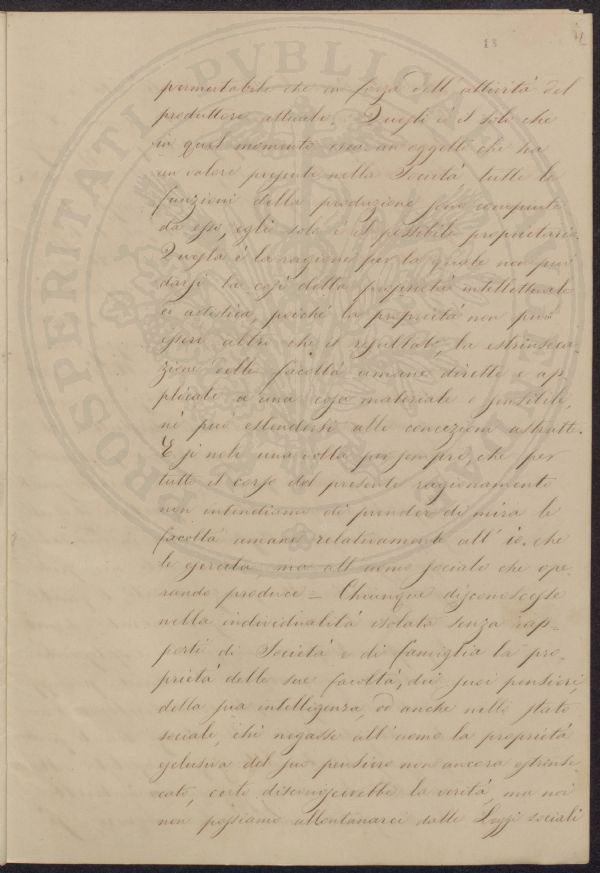 13
permutabile che in forza dell'attività del
produttore attuale. Quegli è il solo che
in quel momento crea un oggetto che ha
un valore presente nella Società tutte le
funzioni della produzione sono compiute
da esso, egli solo è il possibile proprietario.
Questa è la ragione per la quale non può
darsi la così detta proprietà intellettuale
ed artistica, poichè la proprietà non può
essere altro che il risultato, la estrinseca-
zione delle facoltà umane dirette e ap-
plicate a una cosa materiale e sensibile,
nè può estendersi alle concezioni astratte.
E si noti una volta per sempre, che per
tutto il corso del presente ragionamento
non intendiamo di prender di mira le
facoltà umane relativamente all'io che
le esercita ma all'uomo sociale che ope-
rando produce – Chiunque disconoscesse
nella individualità isolata senza rap-
porti di Società e di famiglia la pro-
prietà delle sue facoltà, dei suoi pensieri,
della sua intelligenza, od anche nello stato
sociale, chi negasse all'uomo la proprietà
esclusiva del suo pensiero non ancora estrinse-
cato, certo disconoscerebbe la verità, ma noi
non possiamo allontanarci dalle Leggi sociali
PROSPERITATI PUBLICAE